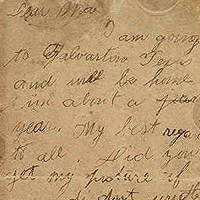 Dear Ma
I am going
to Galvarton Texs
and will be home
in about a year
year. My best rega
to all. Did you
get my picture if